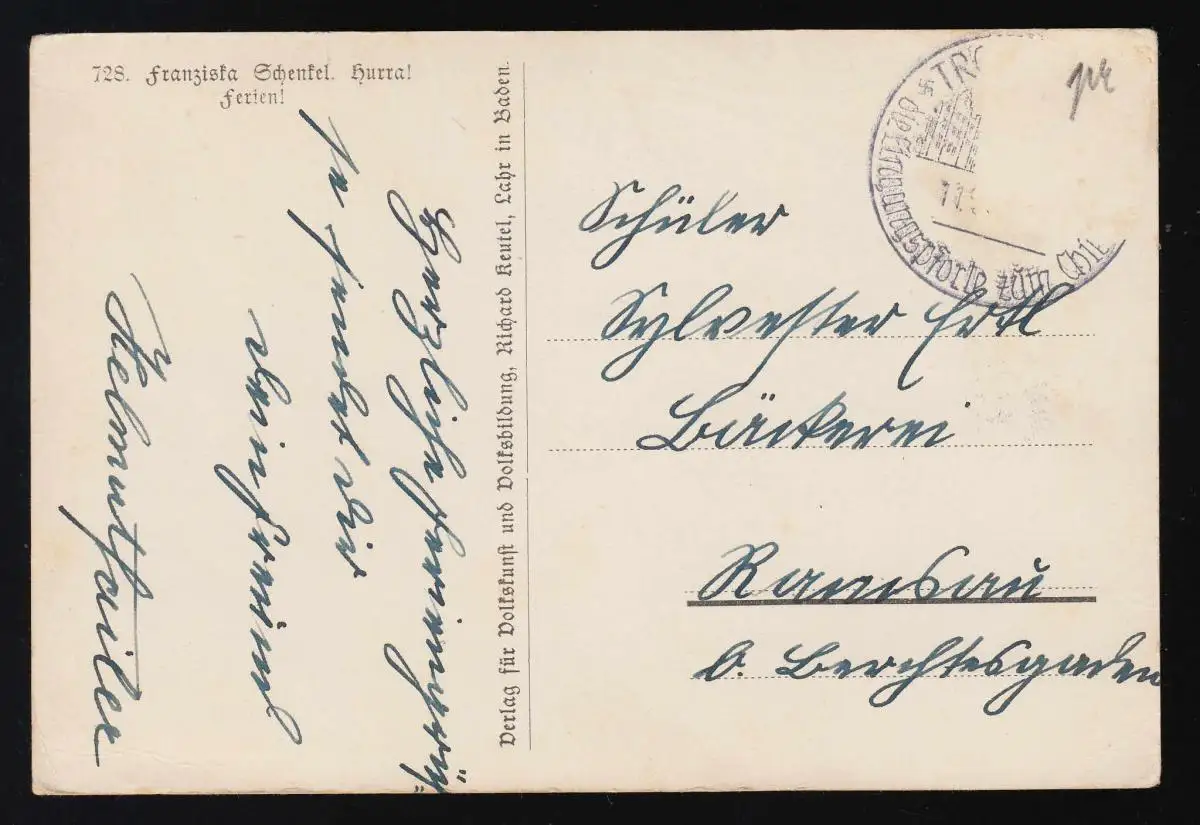 728. Franziska Schenkel. Hurra!
Ferien!
Herzliche Feriengrü=
ße sendet dir
dein Freund
Helmut
Verlag für Volkskunst und Volksbildung, Richard Keutel, Lahr in Baden.
TR
die Eingangspforte zum Chie
Schüler
Sylvester Ertl
Bäckerei
Ramsau
b. Berchtesgaden